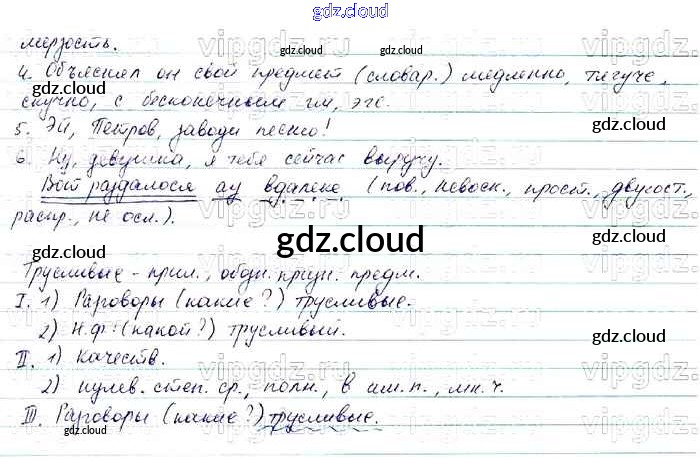 gdz.cloud
мерзость.
4. Объяснял он свой предмет (словар.) медленно, тягуче,
скучно, с бесконечным гм, эге.
5. Эй, Петров, заводи песню!
6. Ну, девушка, я тебе сейчас выручу.
Вот раздалося ау вдалеке (пов., невоск., прост., двусост.,
распр., не осл.).
gdz.cloud
Трусливые - прил., обозн. призн. предм.
I. 1) Разговоры (какие?) трусливые.
2) Н.ф. (какой?) трусливый.
II. 1) Качеств.
2) нулев. степ. ср., полн., в им. п., мн. ч.
III. Разговоры (какие?) трусливые.